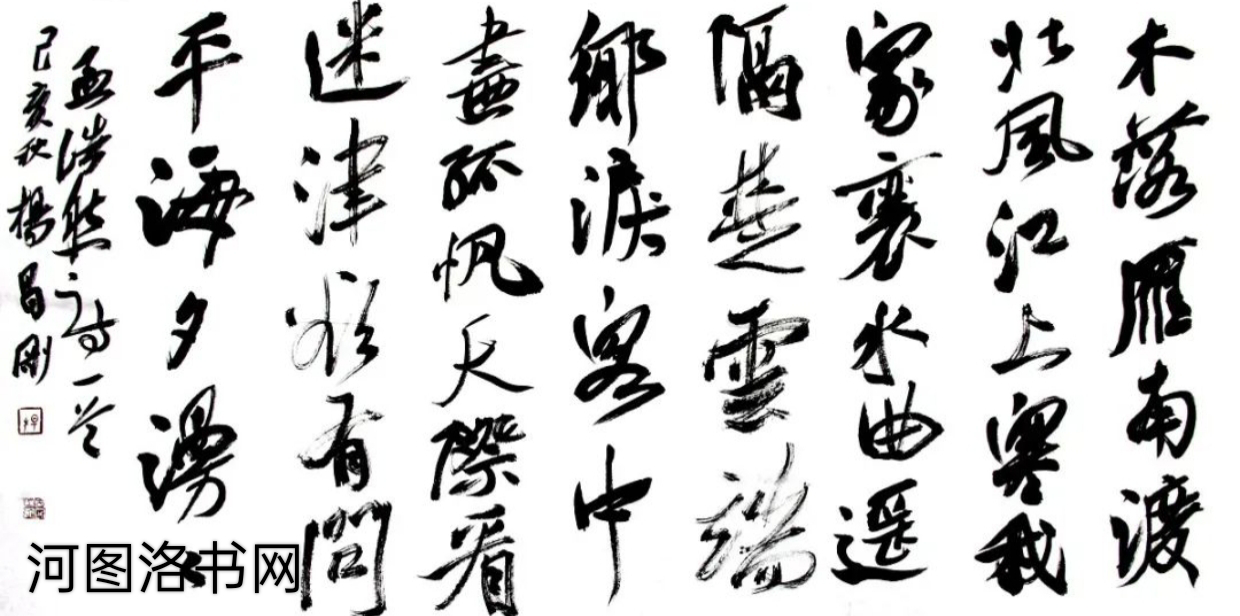 木落雁南渡
北風江上寒我
家襄水曲遥
隔楚雲端
鄉淚客中
盡孤帆天際看
迷津欲有問
平海夕漫
孟浩然之詩一首
己亥秋楊昌剛
河图洛书网